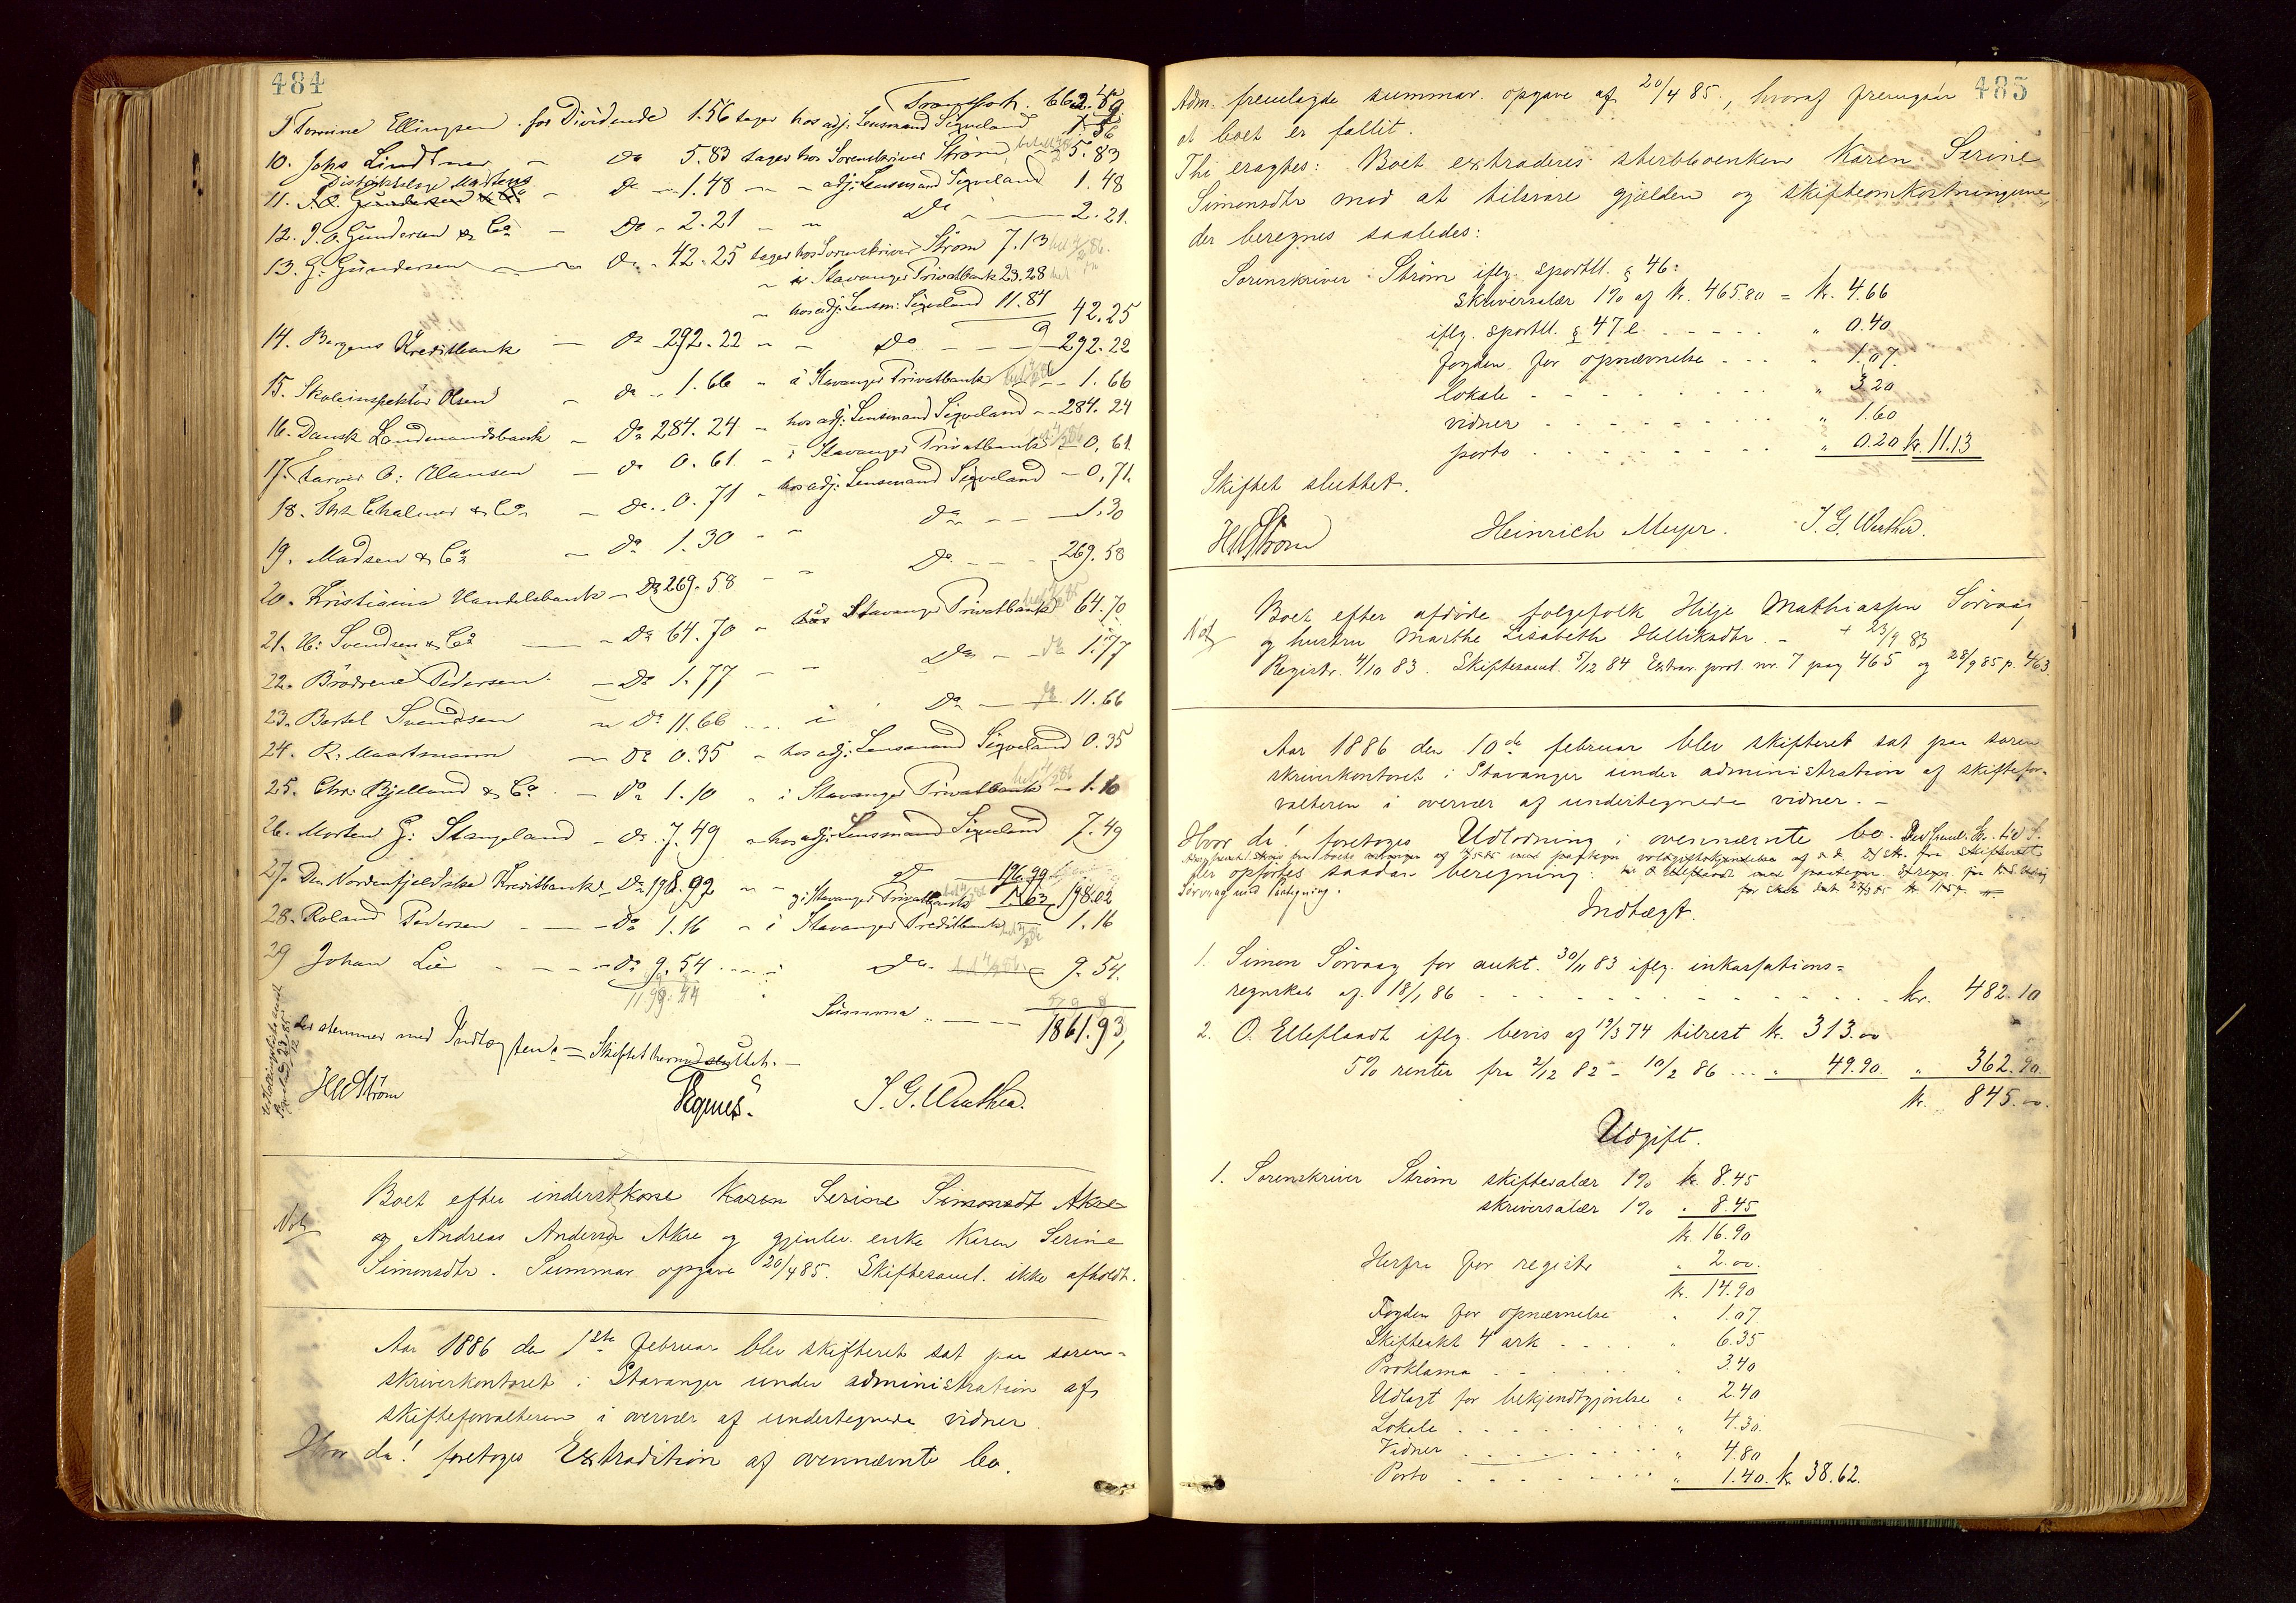 484
Transport. 662.89
9 Tomine Ellingsen for Dividende 1.56 tages hos adj. Lensmand Sigveland 1.56
10. Johs Lindtner - do 5.83 tages hos Sorenskriver Strøm 5.83
Distriktslæge Martens
11. - do - 1.48 - - adj. Lensmand Sigveland 1.48
12. J. O. Gundersen & Co - do - 2.21 - do - 2.21.
13. G. Gundersen - do - 42.25 tages hos Sorenskriver Strøm 7.13
- i Stavanger Privatbank 23.28
- hos adj. Lensm: Sigveland 11.84 42.25
14. Bergens Kreditbank - do 292.22 - - do - 292.22
15. Skoleinspektør Olsen - do - 1.66 - i Stavanger Privatbank - 1.66
16. Dansk Landmandsbank - do 284.24 - hos adj: Lensmand Sigveland - 284.24
17. O: Hansen - do 0.61 - i Stavanger Privatbank - 0,61
18. Ths Chalmer & Co - do - 0.71 - hos adj: Lensmand Sigveland - 0,71.
19. Madsen & Co - do 1.30 - - do - - 1.30
20. Kristiania Handelsbank - do 269.58 - - do - - 269.58
21. H: Svendsen & Co - do 64.70 - Stavanger Privatbank 64.70
22. Brødrene Pedersen - do 1.77 - - do - - 1.77
23. Bertel Svendsen - do 11.66 - i do - 11.66
24. R: Maartmann - do 0.35 - hos adj: Lensmand Sigveland 0.35
25. Chr: Bjelland & Co - do 1.10 - i Stavanger Privatbank - 1.10
26. Morten G: Stangeland - do - 7.49 - hos adj: Lensmand Sigveland 7.49
27. Den Nordenfjeldske Kreditbank - do 198.92 - - do 196.99
i Stavanger Privatbank 1.63 198.62
28. Roland Pedersen - do 1.16 - i Stavanger Kreditbank 1.16
29 Johan Lie - - do 9.54 - i do. 9.54.
Summa - - 1861.93,
der stemmer med Indtægten. = Skiftet hermed sluttet. -
HWStrøm Vegner. T. G. Werther.
Not Boet efter inderstkone Karen Serine Simonsdt Akre
og Andreas Andersen Akre og gjenlev. enke Karen Serine
Simonsdtr. Summar opgave 20/4 85. Skiftesaml. ikke afholdt.
Aar 1886 den 1ste februar blev skifteret sat paa soren-
skriverkontoret i Stavanger under administration af
skifteforvalteren i overvær af undertegnede vidner.
Hvor da! foretoges Extradition af ovennævnte bo.
485
Adm. fremlagde summar. opgave af 20/4 85, hvoraf fremgaar
at boet er fallit.
Thi eragtes: Boet extraderes sterbboenken Karen Serine
Simonsdtr mod at tilsvare gjælden og skifteomkostningerne,
der beregnes saaledes:
Sorenskriver Strøm iflg. sportll. § 46:
skriversalær 1% af kr. 465.80 = kr. 4.66
iflg. sportll. § 47 l - - - - " 0.40
fogden for opnævnelse - - - " 1.07.
lokale - - - - " 3.20
vidner - - - - " 1.60
porto - - - - " 0.20 kr. 11.13
Skiftet sluttet.
HWStrøm Heinrich Meyer. T. G. Werther.
Not Boet efter afdøde folgefolk Hilje Mathiassen Sørvaag
og hustru Marthe Lisabeth Helliksdtr. - + 23/9 83
Registr. 4/10 83. Skiftesaml. 5/12 84 Extrar. prot. nr. 7 pag 465 og 28/9 85 p. 463.
Aar 1886 den 10de februar blev skifteret sat paa soren
skriverkontoret i Stavanger under administration af skiftefor-
valteren i overvær af undertegnede vidner. -
Hvor da! foretoges Udlodning i ovennævnte bo.
der opførtes saadan beregning:
Indtægt.
1. Simon Sørvaag for aukt. 30/11 83 iflg. inkassations=
regnskab af 18/1 86 - - - - kr. 482.10
2. O. Elleflaadt iflg. bevis af 19/3 74 tilrest kr. 313.00
5% renter fra 2/12 82 - 10/2 86 ... " 49.90. " 362.90.
kr. 845.00.
Udgift.
1. Sorenskriver Strøm skiftesalær 1% kr. 8.45
skriversalær 1% " 8.45
kr. 16.90
Herfra for registr " 2.00.
kr. 14.90
Fogden for opnævnelse " 1.07
Skifteakt 4 ark " 6.35
Proklama " 3.40
Udlagt for bekjendtgjørelse " 2.40
Lokale " 4.30.
Vidner " 4.80
Porto " 1.40. kr. 38.62.